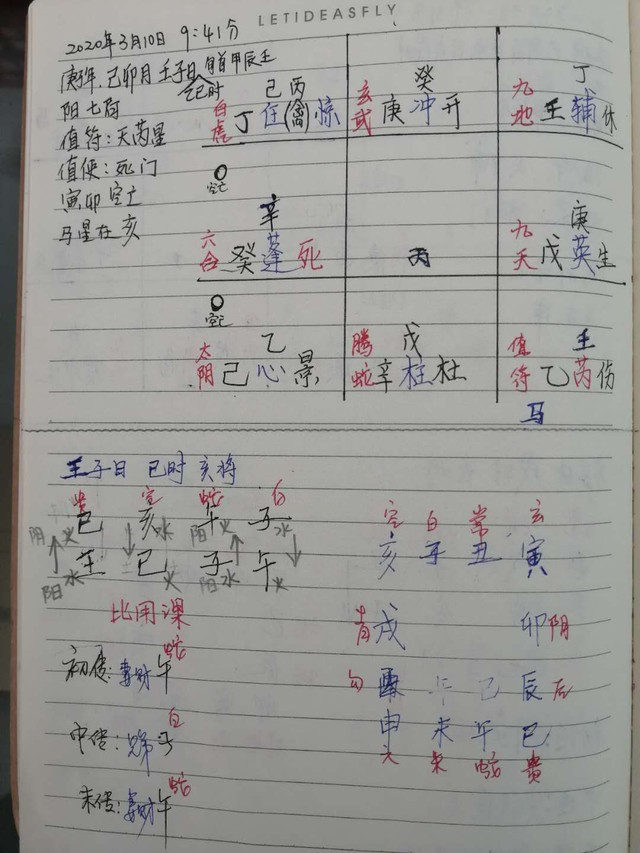 LETIDEASFLY
2020年3月10日 9:41分
庚子年,己卯月 壬子日 旬首甲辰壬
乙巳时
阳七局
值符:天芮星
值使:死门
寅卯空亡
马星在亥
己丙 癸 丁
白虎 丁任(禽)惊 玄武 庚冲开 九地 壬辅休
空亡
辛 庚
六合 癸蓬死 丙 九天 戊英生
空亡
乙 戊 壬
太阴 己心景 腾蛇 辛柱杜 值符 乙芮伤
马
壬子日 巳时 亥将
贵 空 蛇 白
巳火 亥水 午火 子水
阴 阳
壬水 巳火 子水 午火
阳 阳
空 白 常 玄
亥 子 丑 寅
比用课
青 戌 卯 阴
蛇
初传:妻财午
勾 酉 午 巳 辰 后
白
中传:兄弟子
申 未 午 巳
六 朱 蛇 贵
蛇
末传:妻财午